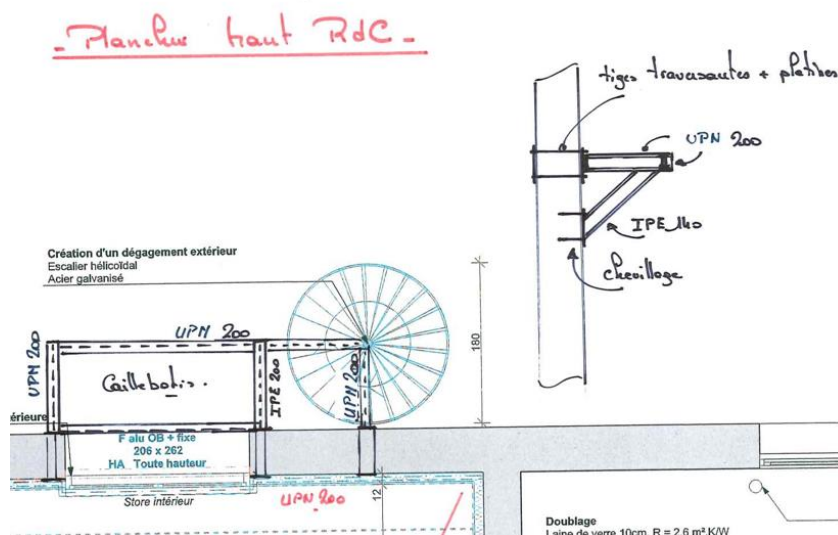 - Plancher haut RdC -
tiges traversantes + platines
UPN 200
IPE 140
chevillage
Création d'un dégagement extérieur
Escalier hélicoïdal
Acier galvanisé
180
UPN 200
UPN 200
Caillebotis.
IPE 200
UPN 200
érieure
F alu OB + fixe
206 x 262
HA Toute hauteur
Store intérieur
UPN 200
12
Doublage
Laine de verre 10cm R = 2,6 m².K/W